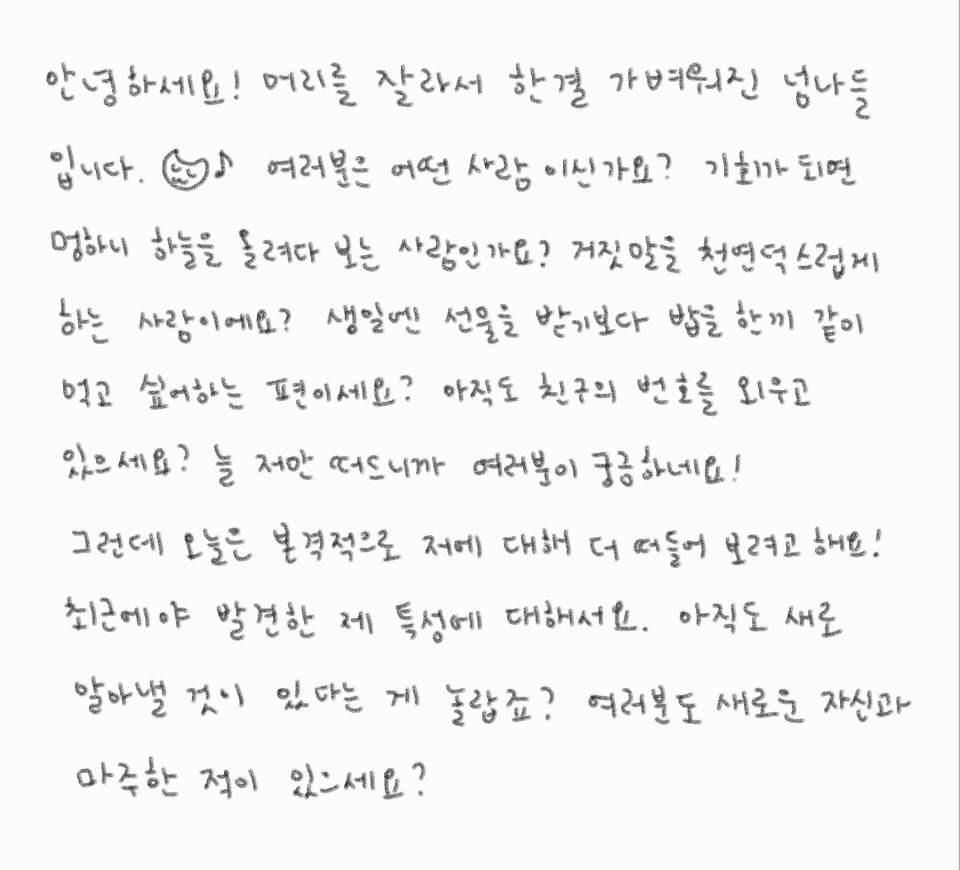 안녕하세요! 머리를 잘라서 한결 가벼워진 넘나들
입니다. ♪ 여러분은 어떤 사람 이신가요? 기회가 되면
멍하니 하늘을 올려다 보는 사람인가요? 거짓말을 천연덕스럽게
하는 사람이에요? 생일엔 선물을 받기보다 밥을 한끼 같이
먹고 싶어하는 편이세요? 아직도 친구의 번호를 외우고
있으세요? 늘 저만 떠드니까 여러분이 궁금하네요!
그런데 오늘은 본격적으로 저에 대해 더 떠들어 보려고 해요!
최근에야 발견한 제 특성에 대해서요. 아직도 새로
알아낼 것이 있다는 게 놀랍죠? 여러분도 새로운 자신과
마주한 적이 있으세요?